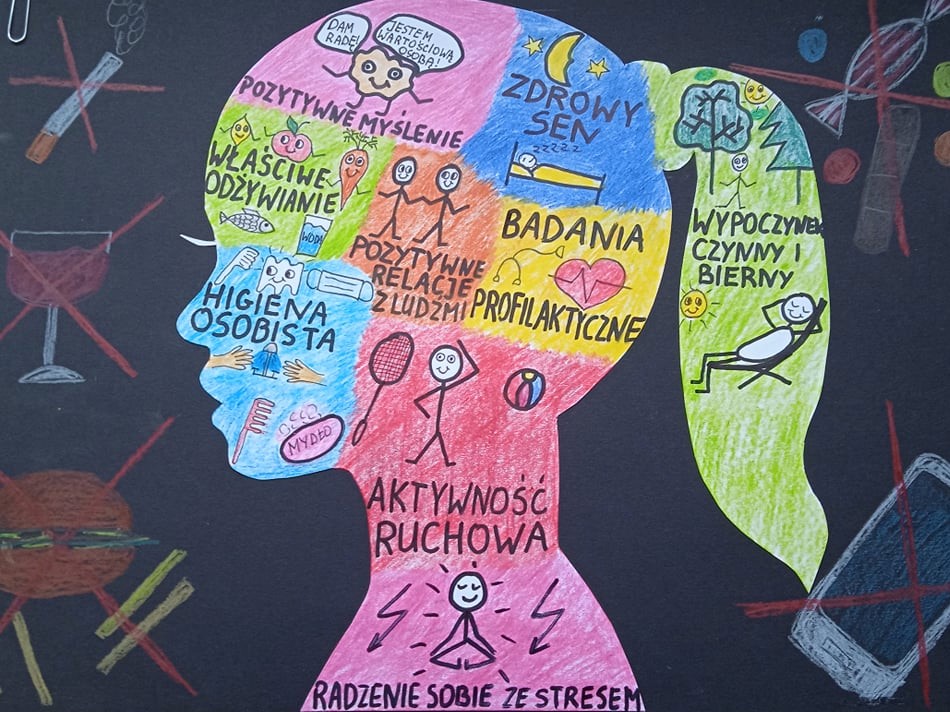 DAM
RADĘ!
JESTEM
WARTOŚCIOWĄ
OSOBĄ!
POZYTYWNE MYŚLENIE
ZDROWY
SEN
zzzzz
WŁAŚCIWE
ODŻYWIANIE
WODA
POZYTYWNE
RELACJE
Z LUDŹMI
BADANIA
PROFILAKTYCZNE
WYPOCZYNEK
CZYNNY I
BIERNY
HIGIENA
OSOBISTA
MYDŁO
AKTYWNOŚĆ
RUCHOWA
RADZENIE SOBIE ZE STRESEM